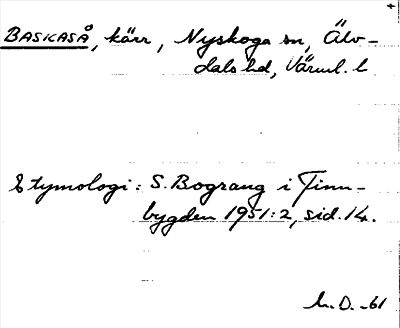 BASICASÅ, kärr, Nyskoga sn, Älv-
dals hd, Värml. l
Etymologi: S. Bograng i Finn-
bygden 1951:2, sid. 14.
h. D. -61